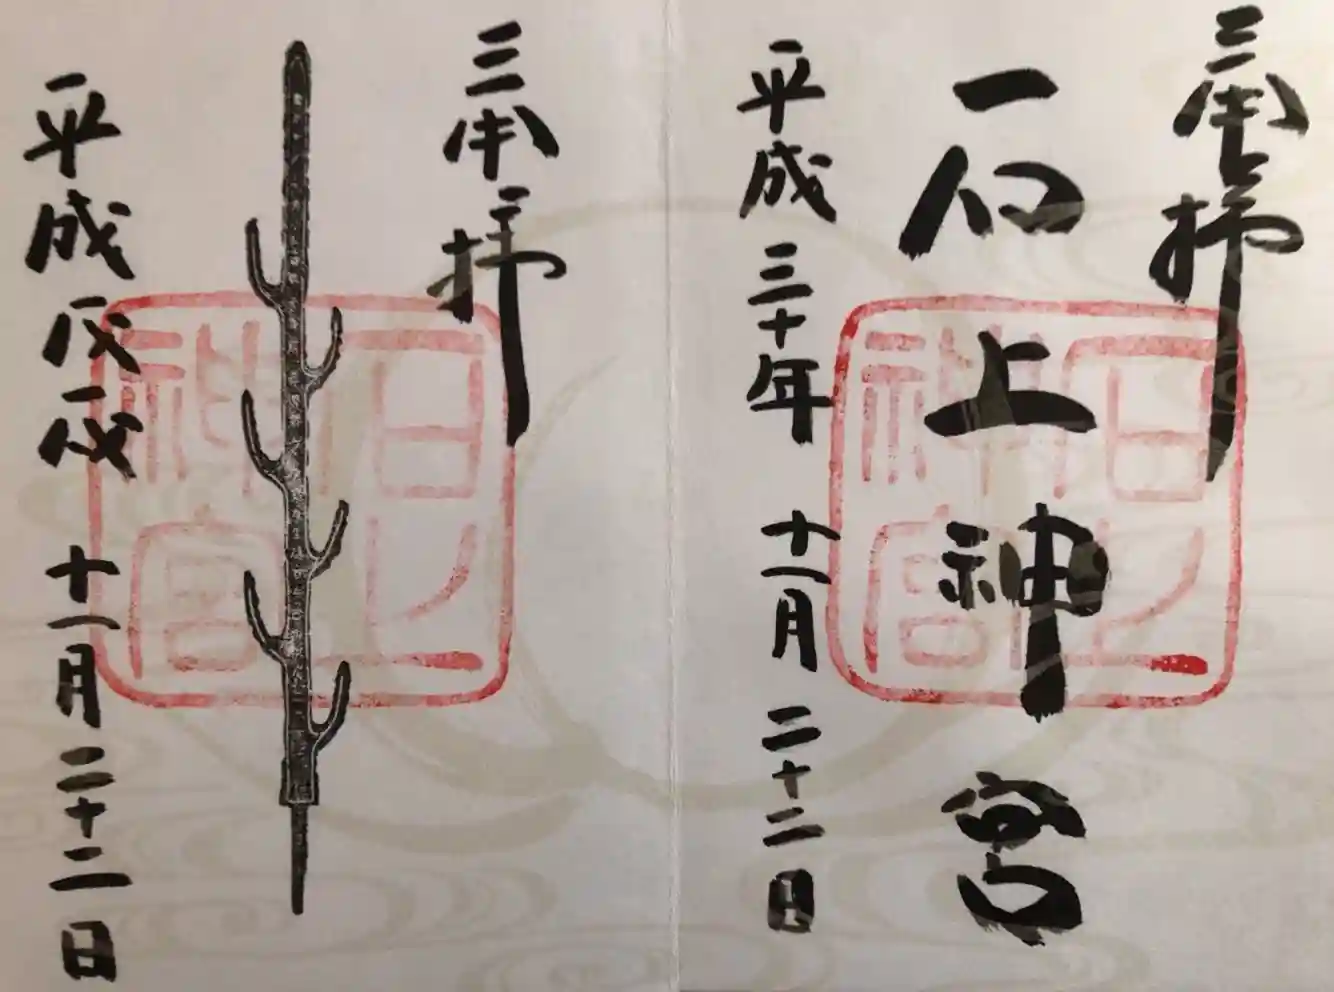 奉拝
石上神宮
平成三十年十一月二十二日
石上神宮
奉拝
平成戊戌十一月二十二日
石上神宮